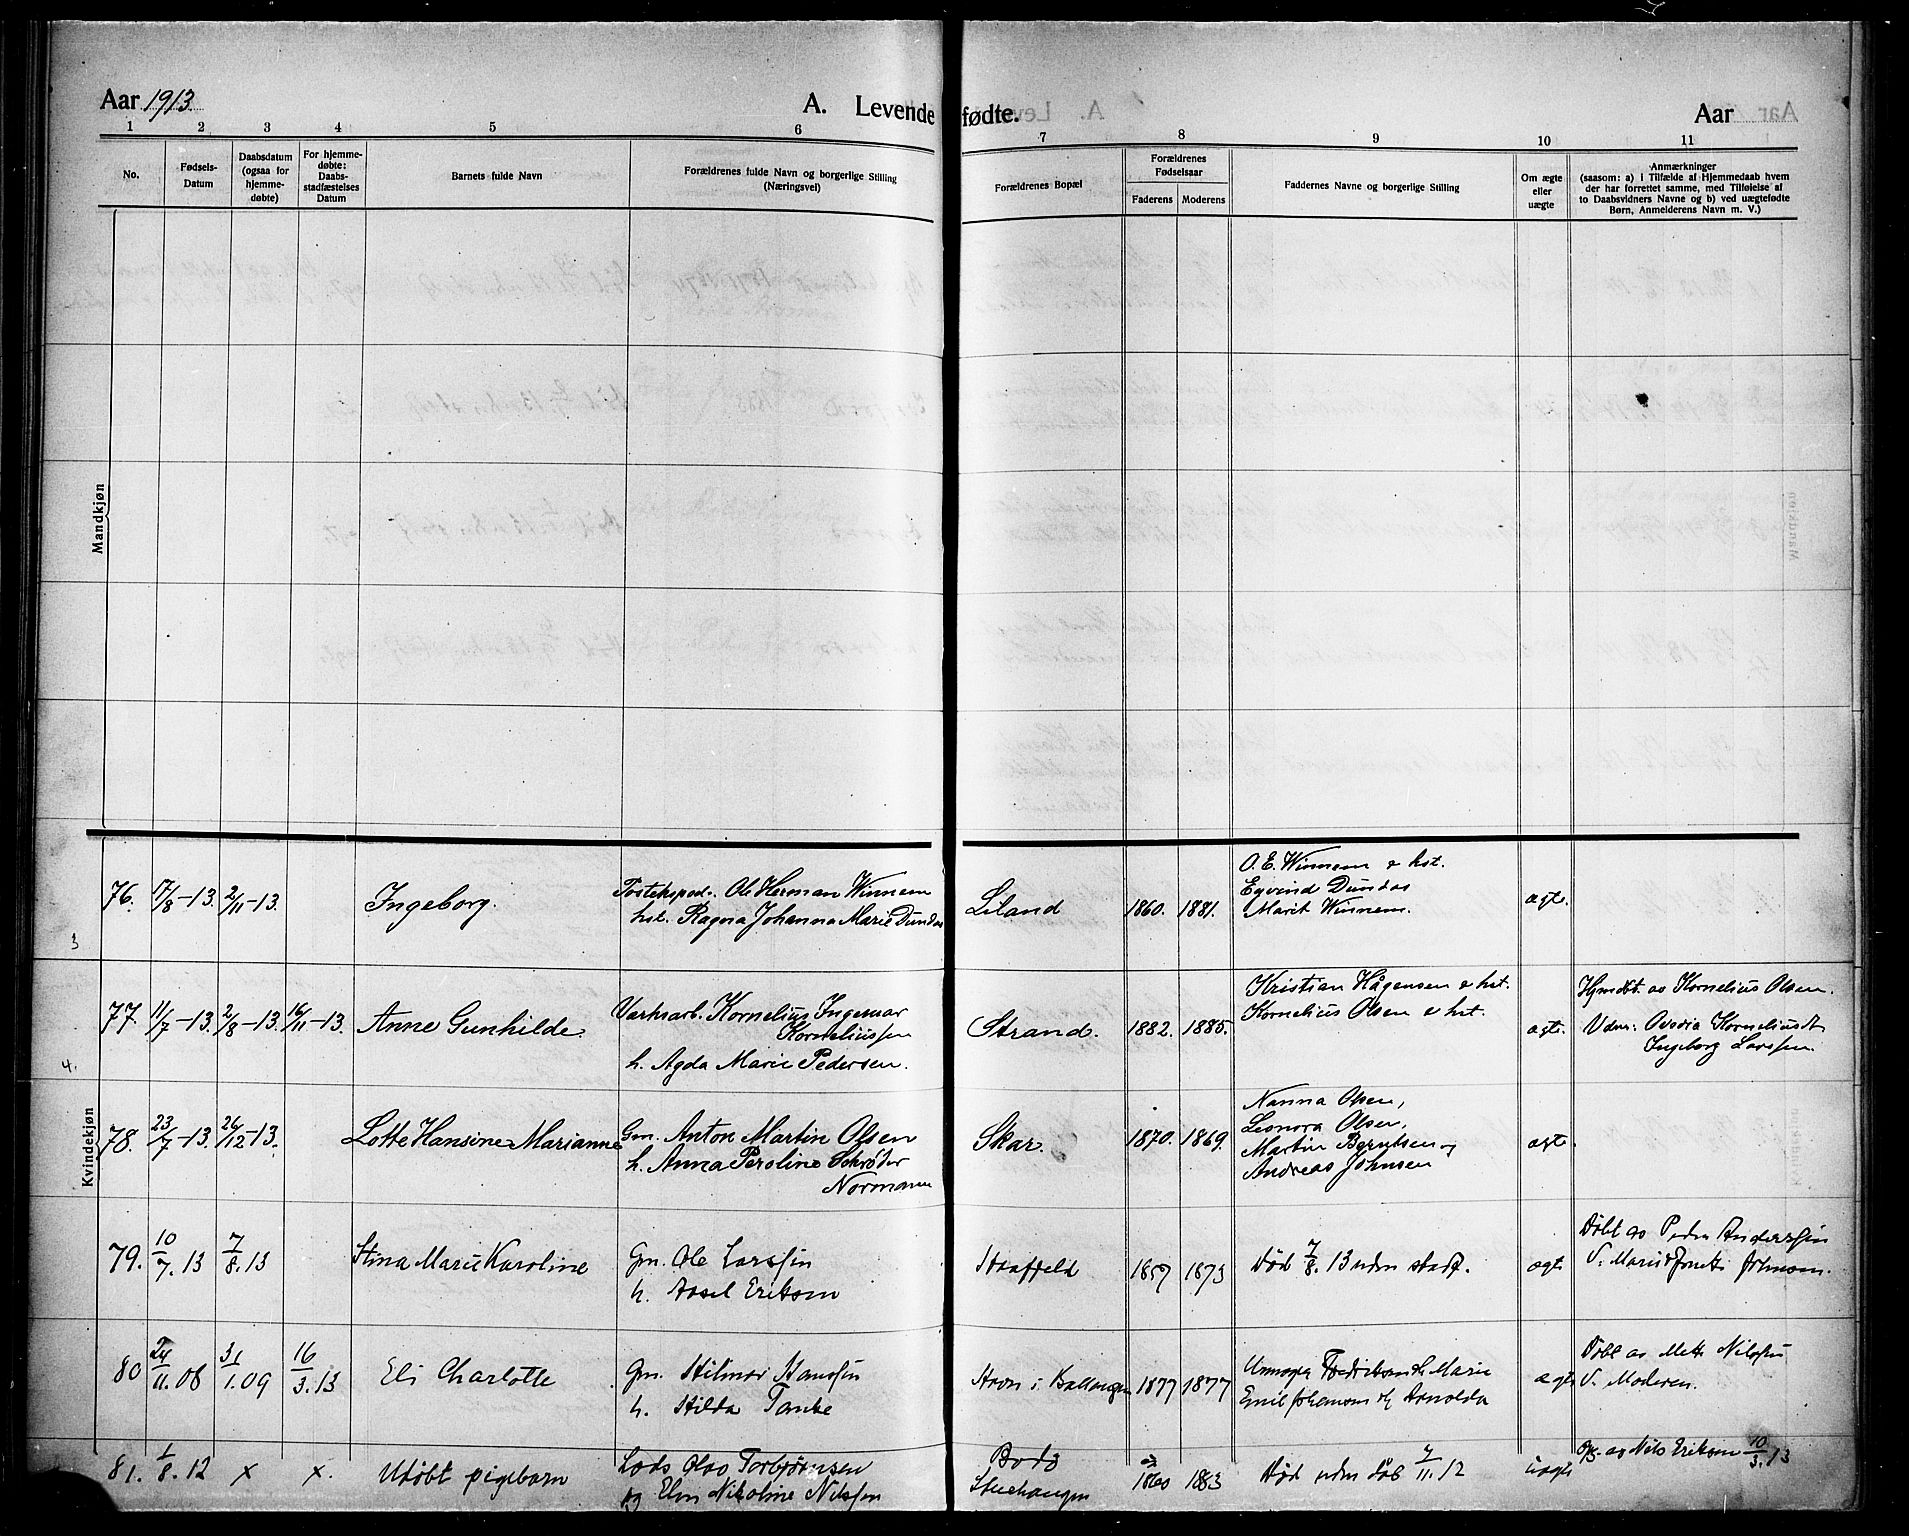 Aar 1913.
A. Levende
fødte.
Aar
1 2 3 4 5 6
7 8 9 10 11
No.
Fødsels-
Datum
Daabsdatum
(ogsaa for
hjemme-
døbte)
For hjemme-
døbte:
Daabs-
stadfæstelses
Datum
Barnets fulde Navn
Forældrenes fulde Navn og borgerlige Stilling
(Næringsvei)
Forældrenes Bopæl
Forældrenes
Fødselsaar
Faderens Moderens
Faddernes Navne og borgerlige Stilling
Om ægte
eller
uægte
Anmærkninger
(saasom: a) i Tilfælde af Hjemmedaab hvem
der har forrettet samme, med Tilføielse af
to Daabsvidners Navne og b) ved uægtefødte
Børn, Anmelderens Navn m. V.)
Mandkjøn
Kvindekjøn
3
4.
76. 17/8-13. 2/11-13.
Ingeborg.
Postekspedr. Ole Herman Winnem
hst. Ragna Johanna Marie Dundas
Liland
1860. 1881.
O. E. Winnem & hst.
Eyvind Dundas
Marit Winnem.
ægte.
77. 11/7-13. 2/8-13. 16/11-13.
Anne Gunhilde.
Værksarb. Kornelius Ingemar
Korneliussen
h. Agda Marie Pedersen.
Strand.
1882. 1885.
Kristian Hågensen & hst.
Kornelius Olsen & hst.
ægte.
Hjmdøbt. av Kornelius Olsen.
Vidner: Ovedia Korneliusdt.
Ingeborg Larssen.
78. 23/7-13. 26/12-13.
Lotte Hansine Marianne
Gm. Anton Martin Olsen
h. Anna Peroline Schrøder
Normann
Skar.
1870. 1869.
Nanna Olsen,
Leonora Olsen,
Martin Berntsen og
Andreas Johnsen
ægte
79. 10/7.13 7/8.13
Stina Marie Karoline
Gm. Ole Larssen
h. Assel Eriksen
Staffjeld
1857 1873
Død 7/8.13 uden stadf.
ægte
Døbt av Peder Anderssen
V. Marie & Johnsen.
80 24/11.08 31/1.09 16/3.13
Eli Charlotte
Gm. Hilmar Hanssen
h. Hilda Tanke
Havn i Ballangen
1877 1877
Fredriksen & Marie
Emil Johansen & Arnolda
ægte
Døbt av Mette Nilssen
V. Moderen.
81. 1/8.12 x x.
Udøbt pigebarn
Lods Olav Torbjørnsen
og Elen Nikoline Nilssen
Bodø
1860 1883
Død uden dåb 7/11.12
uægte
av Nils Eriksen 10/3.13